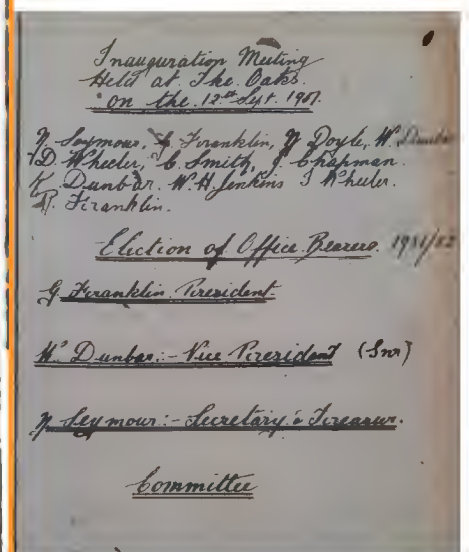 Inauguration Meeting
Held at The Oaks.
on the 12th Sept. 1951.
N Seymour, G Franklin, N Doyle, W. Dunbar
D Wheeler, C. Smith, J. Chapman.
K. Dunbar. W.H. Jenkins J Wheeler.
Franklin.
Election of Office Bearers. 1951/52
G Franklin President
W Dunbar:- Vice President (Snr)
N Seymour:- Secretary & Treasurer.
Committee